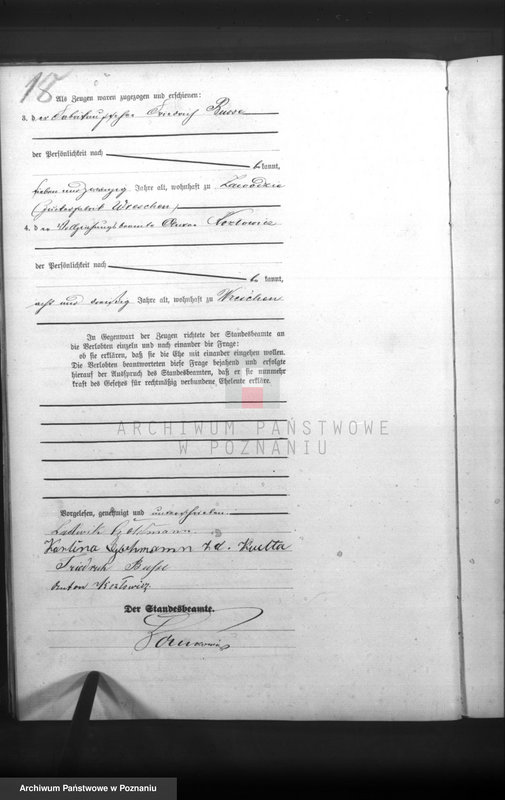 18
Als Zeugen waren zugezogen und erschienen:
3. der Friedrich Busse
der Persönlichkeit nach
be kannt,
sieben und zwanzig Jahre alt, wohnhaft zu Zawodzie
(Zuckerfabrik Wreschen)
4. der Vollziehungsbeamte Anton Kozlowicz
der Persönlichkeit nach
be kannt,
acht und dreißig Jahre alt, wohnhaft zu Wreschen
In Gegenwart der Zeugen richtete der Standesbeamte an
die Verlobten einzeln und nach einander die Frage:
ob sie erklären, daß sie die Ehe mit einander eingehen wollen.
Die Verlobten beantworteten diese Frage bejahend und erfolgte
hierauf der Ausspruch des Standesbeamten, daß er sie nunmehr
kraft des Gesetzes für rechtmäßig verbundene Eheleute erkläre.
ARCHIWUM PAŃSTWOWE
W POZNANIU
Vorgelesen, genehmigt und unterschrieben.
Ludwik
Karlina
Friedrich Busse
Anton Kozlowicz
Der Standesbeamte.
Archiwum Państwowe w Poznaniu